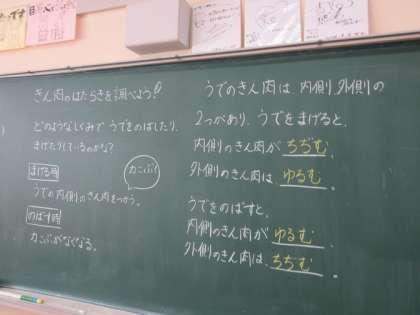 きん肉のはたらきを調べよう！
どのようなしくみで うでをのばしたり、
まげたりしているのかな？
まげる時
力こぶ！
うでの内側のきん肉をつかう。
のばす時
力こぶがなくなる。
うでのきん肉は、内側、外側の
2つがあり、うでをまげると、
内側のきん肉が ちぢむ、
外側のきん肉は ゆるむ。
うでをのばすと、
内側のきん肉が ゆるむ、
外側のきん肉は、ちぢむ。